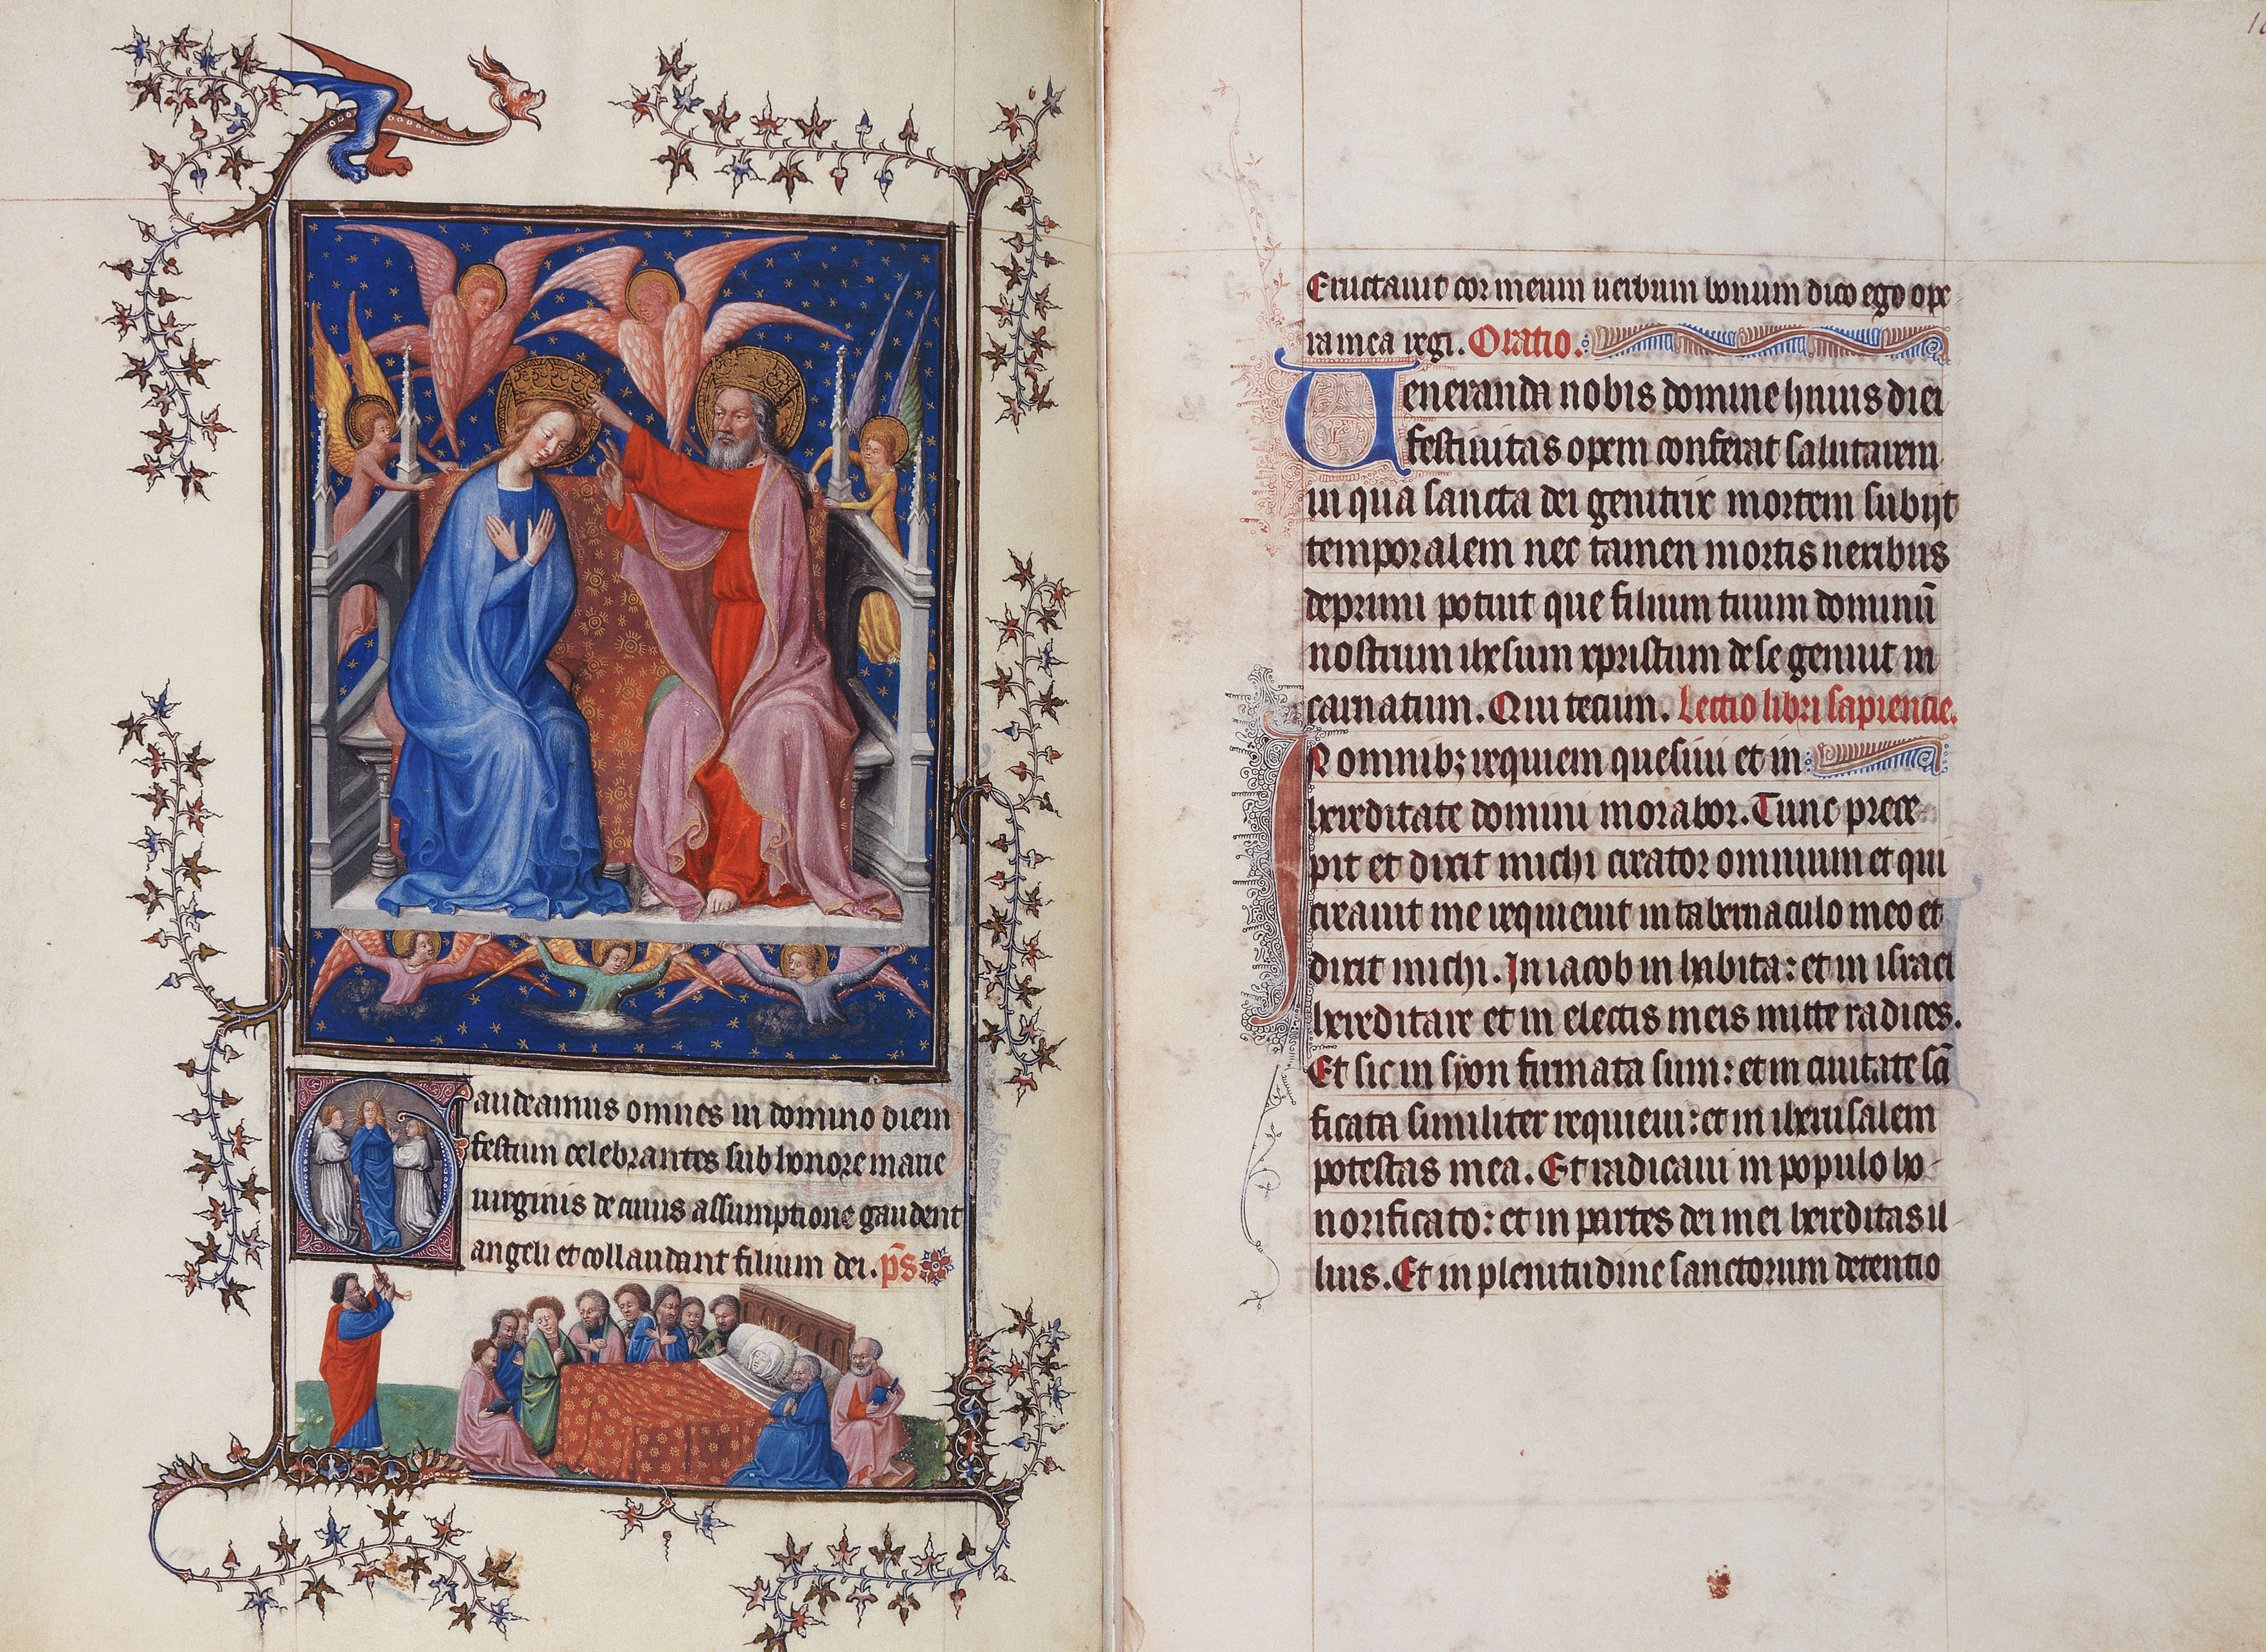 Gaudeamus omnes in domino diem
festum celebrantes sub honore marie
uirginis de cuius assumptione gaudent
angeli et collaudant filium dei. p̄s
Eructauit cor meum uerbum bonum dico ego ope-
ra mea regi. Oratio.
Ueneranda nobis domine huius diei
festiuitas opem conferat salutarem
in qua sancta dei genitrix mortem subijt
temporalem nec tamen mortis nexibus
deprimi potuit que filium tuum dominū
nostrum ihesum xpristum de se genuit in
carnatum. Qui tecum. Lectio libri sapiencie.
IN omnibꝫ requiem quesiui et in
hereditate domini morabor. Tunc prece-
pit et dixit michi creator omnium et qui
creauit me requieuit in tabernaculo meo et
dixit michi. In iacob in habita: et in israel
hereditare et in electis meis mitte radices.
Et sic in syon firmata sum: et in ciuitate sc̄i
ficata similiter requieui: et in iherusalem
potestas mea. Et radicaui in populo ho-
norificato: et in partes dei mei hereditas il-
lius. Et in plenitudine sanctorum detentio